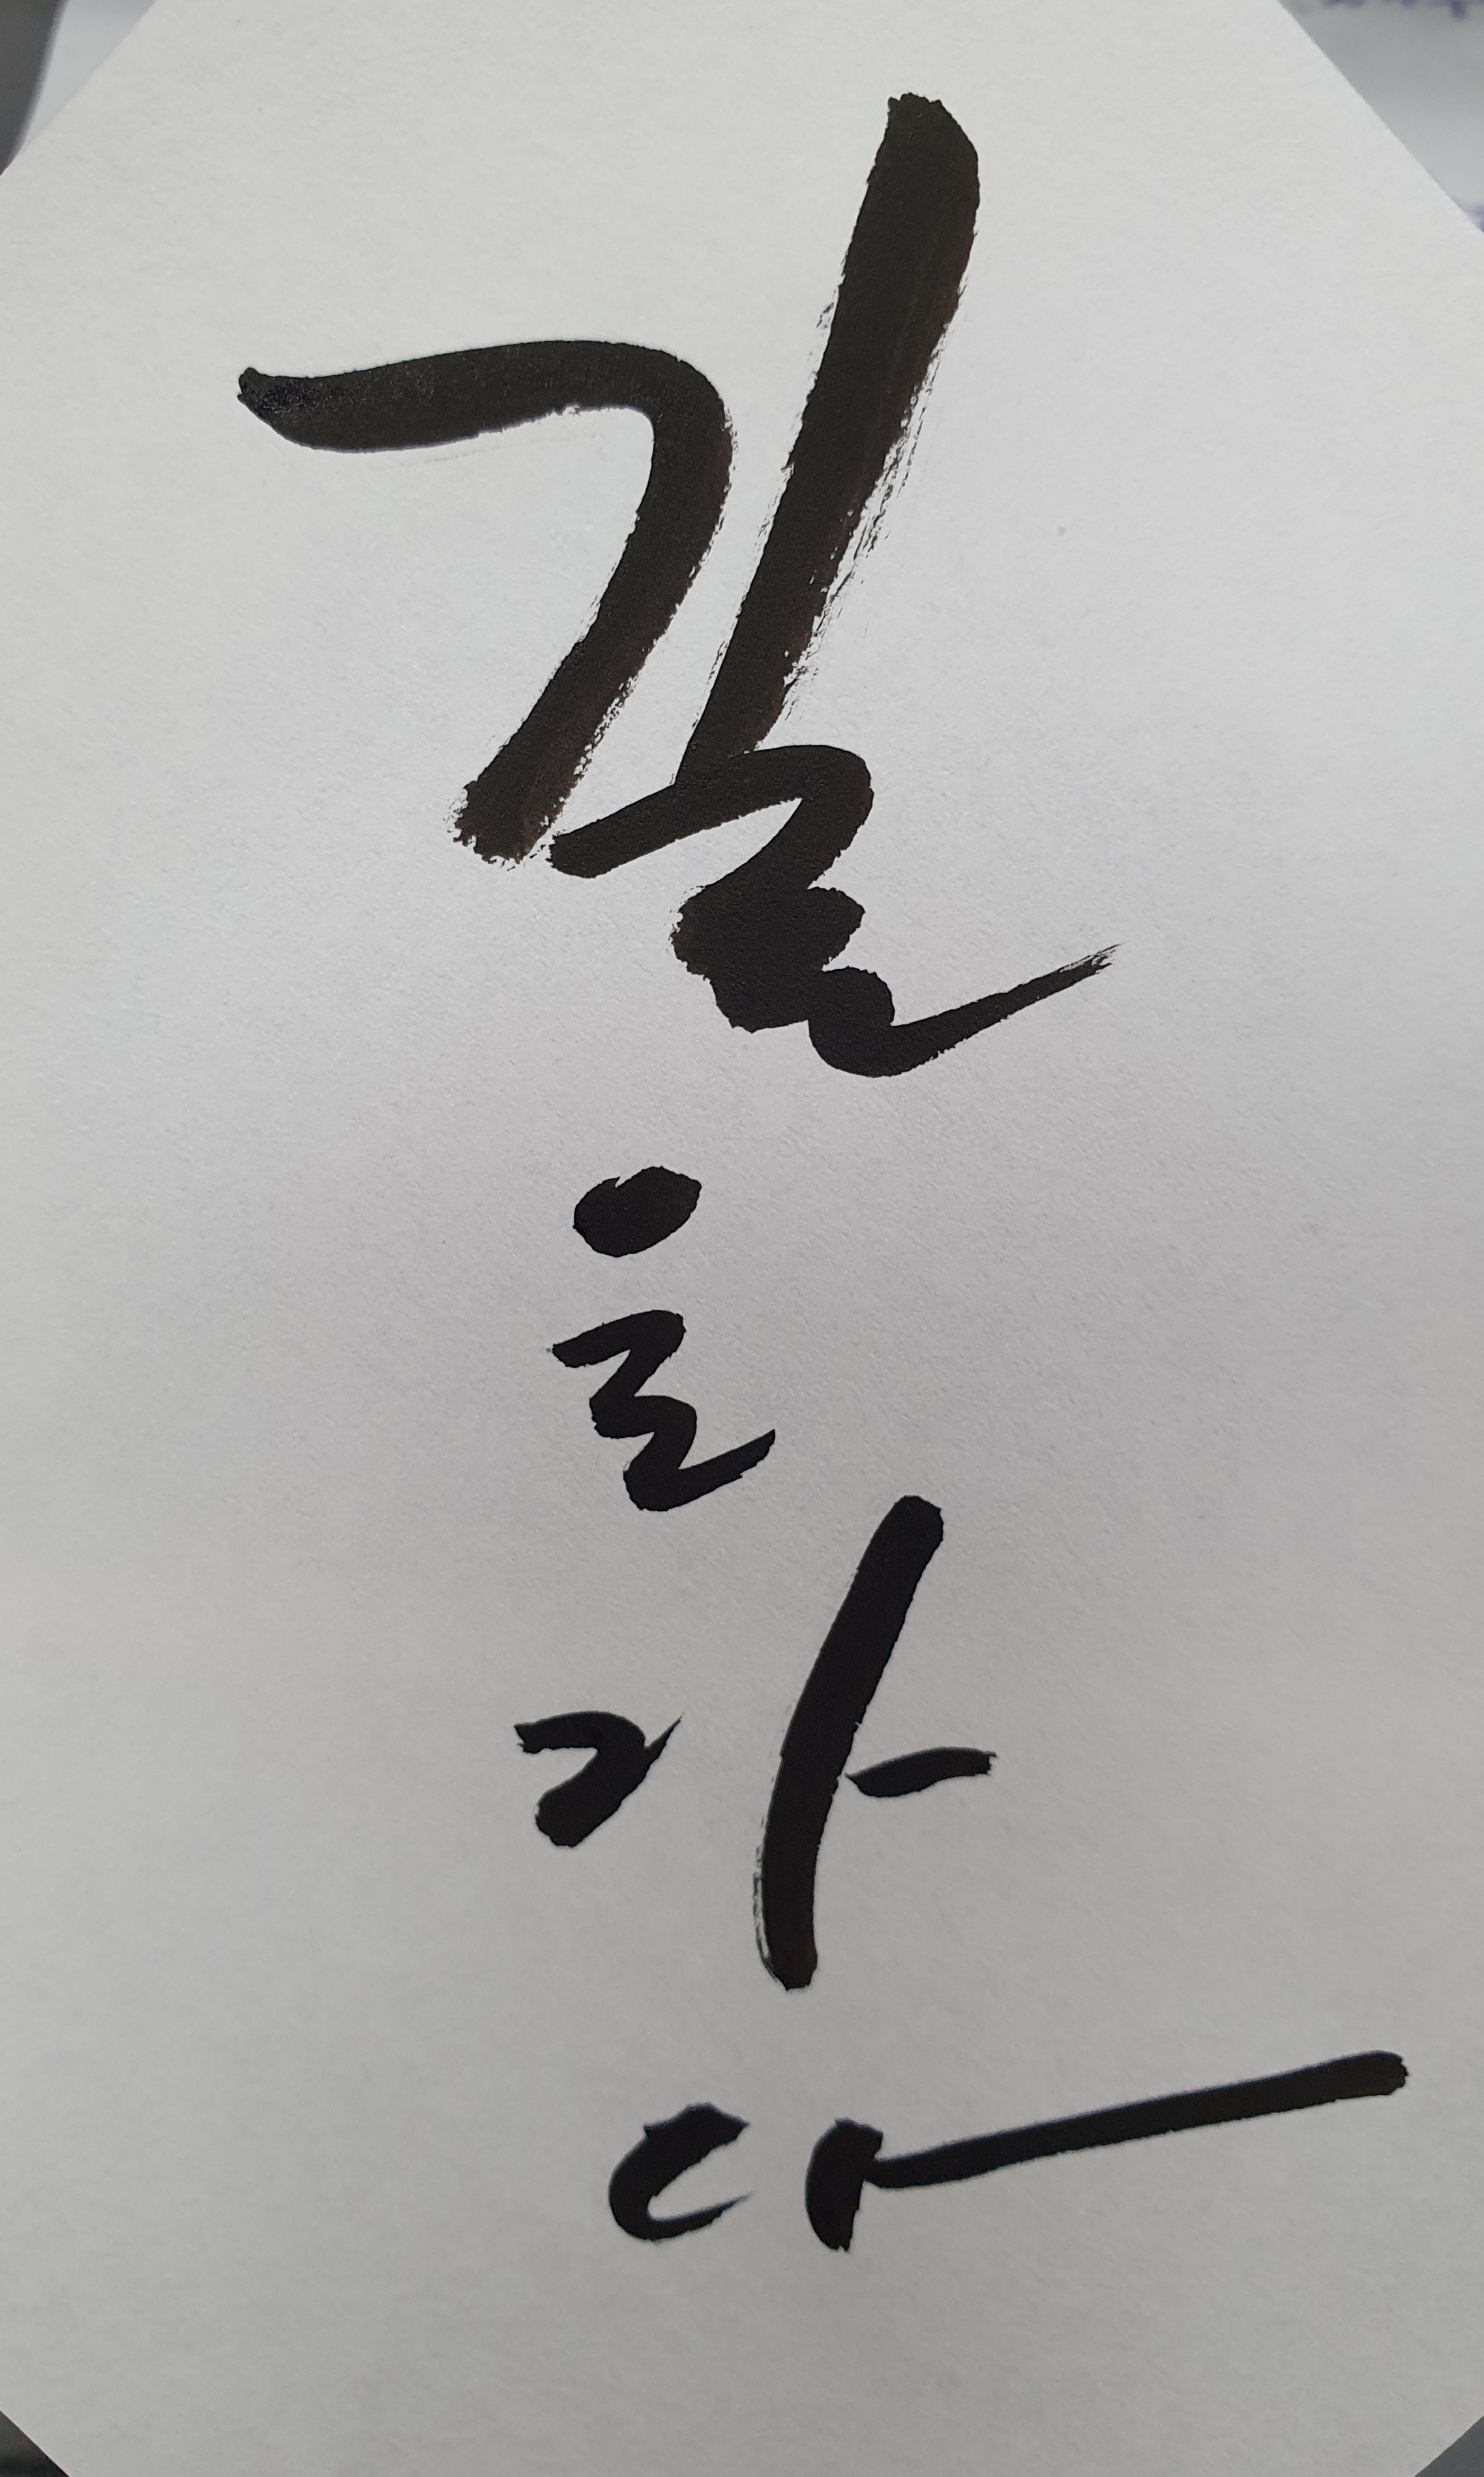 길
을
가
다